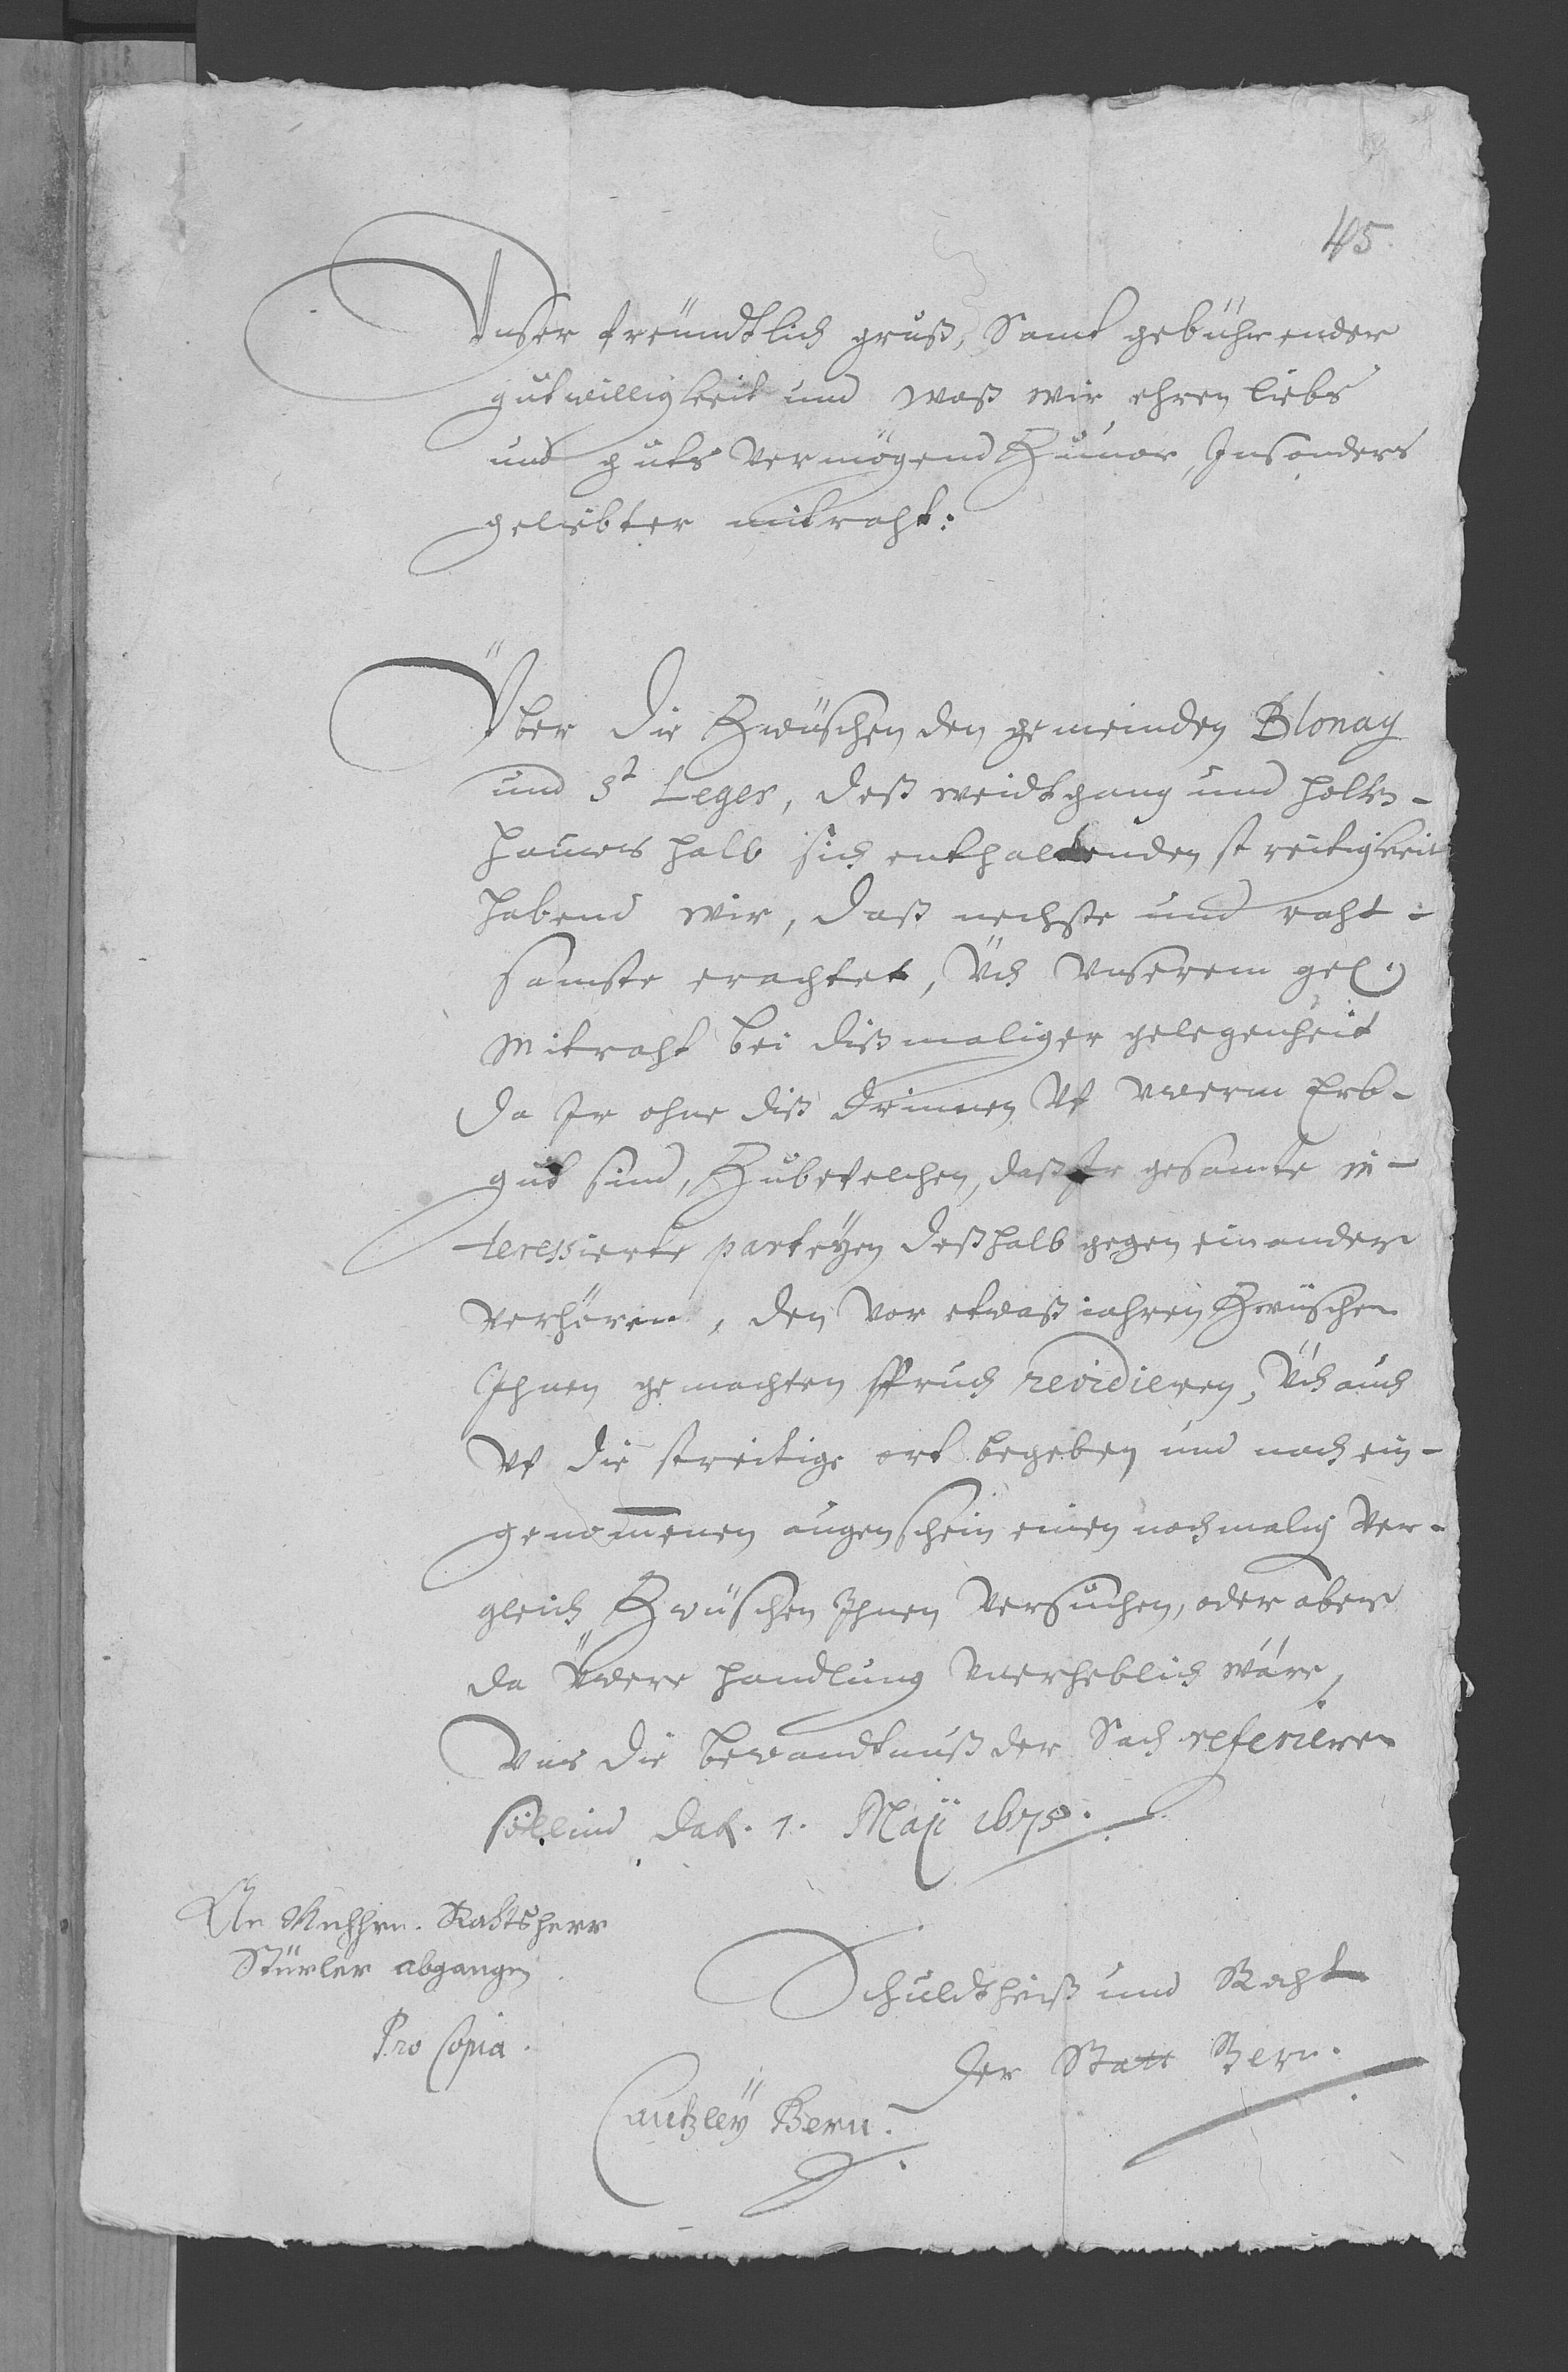 45.
Unser freündtlich gruß, Samt gebührender
gutwilligkeit und waß wir ehren liebs
und guts vermögend Zuvor, Insonders
geliebter mitraht:
Über die Zwüschen den gemeinden Blonay
und St Leger, deß weidtgang und holtz-
hauwes halb sich enthaltenden streitigkeit
habend wir, daß nechste und raht-
samste erachtet, Üch unserem gel.
Mitraht bei dißmaliger gelegenheit
da Ir ohne diß drinnen uf uwerm Erb-
gut sind, Zubefelchen, daß Ir gesamte in-
teressierte parteyen deßhalb gegen einander
verhören, den vor etwaß iahren Zwüschen
Ihnen gemachten spruch revidieren, Üch auch
uf die streitige ort begeben und nach ein-
genom̅enen augenschein einen nochmalig ver-
gleich Zwüschen Ihnen versuchen, oder aber
da Üwere handlung unerheblich wäre,
uns die bewandtnuß der Sach referieren
söllind dat. 1. Maji 1675.
An Mnhhrn. Rahtsherr
Stürler abgangen
Pro Copia.
Schuldtheiß und Raht
der Statt Bern.
Cantzley Bern.